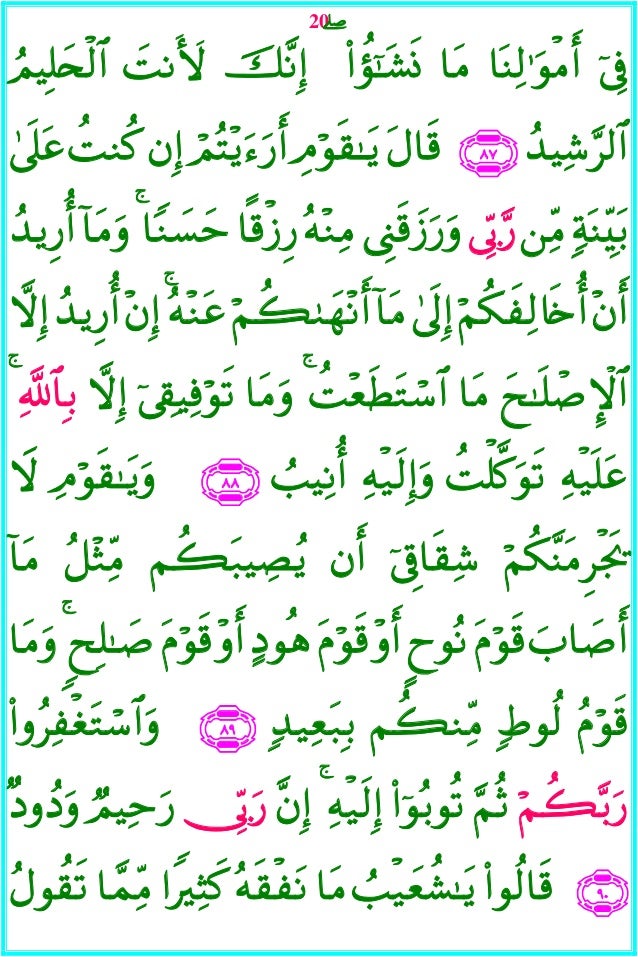 20صلى
فِىٓ أَمْوَٰلِنَا مَا نَشَـٰٓؤُا۟ إِنَّكَ لَأَنتَ ٱلْحَلِيمُ
ٱلرَّشِيدُ ٨٧ قَالَ يَـٰقَوْمِ أَرَءَيْتُمْ إِن كُنتُ عَلَىٰ
بَيِّنَةٍ مِّن رَّبِّى وَرَزَقَنِى مِنْهُ رِزْقًا حَسَنًا ۚ وَمَآ أُرِيدُ
أَنْ أُخَالِفَكُمْ إِلَىٰ مَآ أَنْهَىٰكُمْ عَنْهُ ۚ إِنْ أُرِيدُ إِلَّا
ٱلْإِصْلَـٰحَ مَا ٱسْتَطَعْتُ ۚ وَمَا تَوْفِيقِىٓ إِلَّا بِٱللَّهِ ۚ
عَلَيْهِ تَوَكَّلْتُ وَإِلَيْهِ أُنِيبُ ٨٨ وَيَـٰقَوْمِ لَا
يَجْرِمَنَّكُمْ شِقَاقِىٓ أَن يُصِيبَكُم مِّثْلُ مَآ
أَصَابَ قَوْمَ نُوحٍ أَوْ قَوْمَ هُودٍ أَوْ قَوْمَ صَـٰلِحٍ ۚ وَمَا
قَوْمُ لُوطٍ مِّنكُم بِبَعِيدٍ ٨٩ وَٱسْتَغْفِرُوا۟
رَبَّكُمْ ثُمَّ تُوبُوٓا۟ إِلَيْهِ ۚ إِنَّ رَبِّى رَحِيمٌ وَدُودٌ
٩٠ قَالُوا۟ يَـٰشُعَيْبُ مَا نَفْقَهُ كَثِيرًا مِّمَّا تَقُولُ